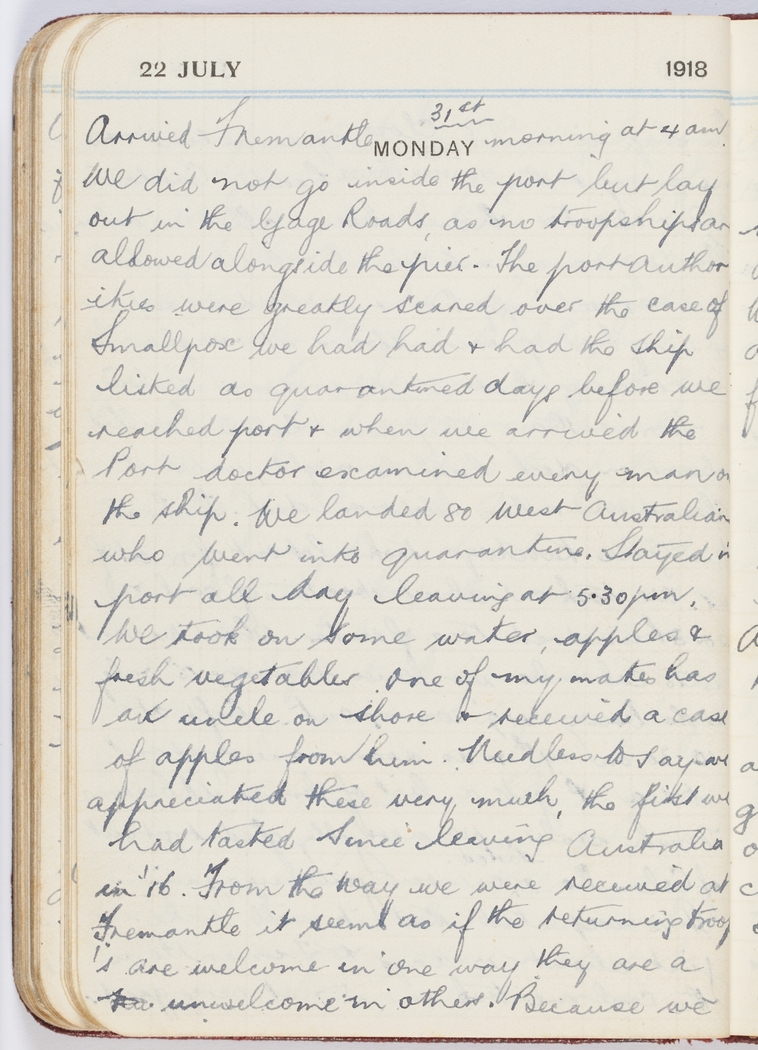 22 JULY 1918
31st
Arrived Fremantle MONDAY morning at 4 am
We did not go inside the port but lay
out in the Gage Roads, as no troopships ar
allowed alongside the pier. The port Author
ities were greatly scared over the case of
Smallpox we had had & had the ship
listed as quarantined days before we
reached port & when we arrived the
Port doctor examined every man o
the ship. We landed 80 West Australian
who went into quarantine. Stayed i
port all day leaving at 5.30 pm.
We took on some water, apples &
fresh vegetables. One of my mates has
an uncle on shore & received a case
of apples from him. Needless to say we
appreciated these very much, the first we
had tasted since leaving Australia
in '16. From the way we were received at
Fremantle it seems as if the returning troop
's are welcome in one way they are a
unwelcome in others. Because we